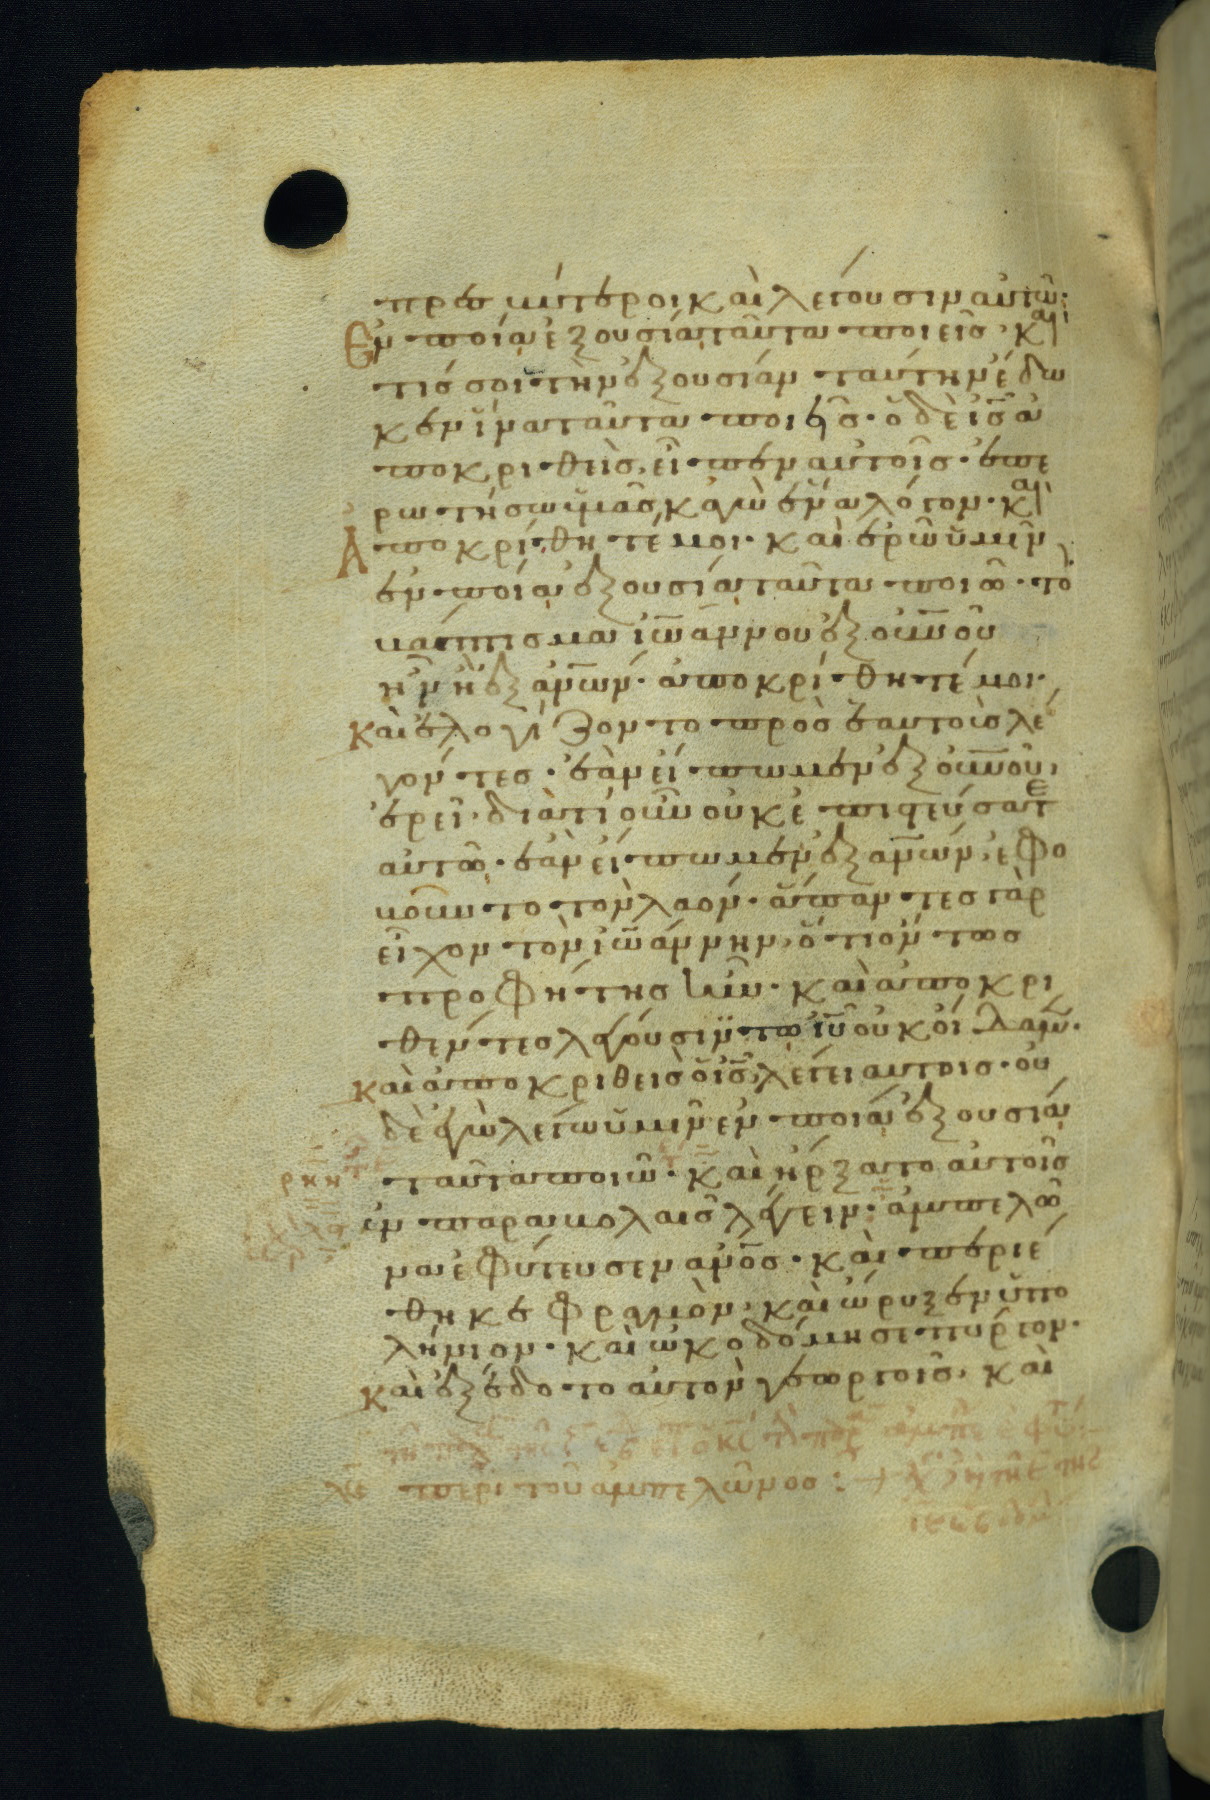 πρεσβύτεροι καὶ λέγουσιν αὐτῶ·
Ἐν ποία ἐξουσία ταῦτα ποιεῖς· καὶ
τίς σοι τὴν ἐξουσίαν ταύτην ἔδω
κεν ἵνα ταῦτα ποιῆς· ὁ δὲ ἰ̅ς̅ ἀ
ποκριθεὶς εἶπεν αὐτοῖς· ἐπε
ρωτήσω ὑμᾶς κἀγὼ ἕνα λόγον· καὶ
Ἀποκρίθητέ μοι· καὶ ἐρῶ ὑμῖν
ἐν ποία ἐξουσία ταῦτα ποιῶ· τὸ
βάπτισμα ἰωάννου ἐξ ο̅υ̅ν̅ο̅ῦ̅
ἦν ἢ ἐξ ἀ̅ν̅ω̅ν̅· ἀποκρίθητέ μοι·
καὶ ἐλογίζοντο πρὸς ἑαυτοὺς λέ
γοντες· ἐὰν εἴπωμεν ἐξ ο̅υ̅ν̅ο̅ῦ̅,
ἐρεῖ· διατί οὖν οὐκ ἐπιστεύσατε
αὐτῶ· ἐὰν εἴπωμεν ἐξ ἀ̅ν̅ω̅ν̅, ἐφο
βοῦντο τὸν λαόν· ἅπαντες γὰρ
εἶχον τὸν ἰωάννην, ὅτι ὄντως
προφήτης ἦν· καὶ ἀποκρι
θέντες λέγουσιν τῶ ἰ̅υ̅ οὐκ οἴδαμεν·
καὶ ἀποκριθεὶς ὁ ἰ̅ς̅ λέγει αὐτοις· οὐ
δὲ ἐγὼ λέγω ὑμῖν ἐν ποία ἐξουσία
ταῦτα ποιῶ· Καὶ ἤρξατο αὐτοῖς
ἐν παραβολαις λέγειν· ἀμπελῶ
να ἐφύτευσεν ἀ̅ν̅ο̅ς̅· καὶ περιέ
θηκε φραγμὸν· καὶ ὤρυξεν ὑπο
λήνιον· καὶ ὠκοδόμησε πύργον·
καὶ ἐξέδοτο αὐτὸν γεωργοῖς· καὶ
περὶ τοῦ ἀμπελῶνος: